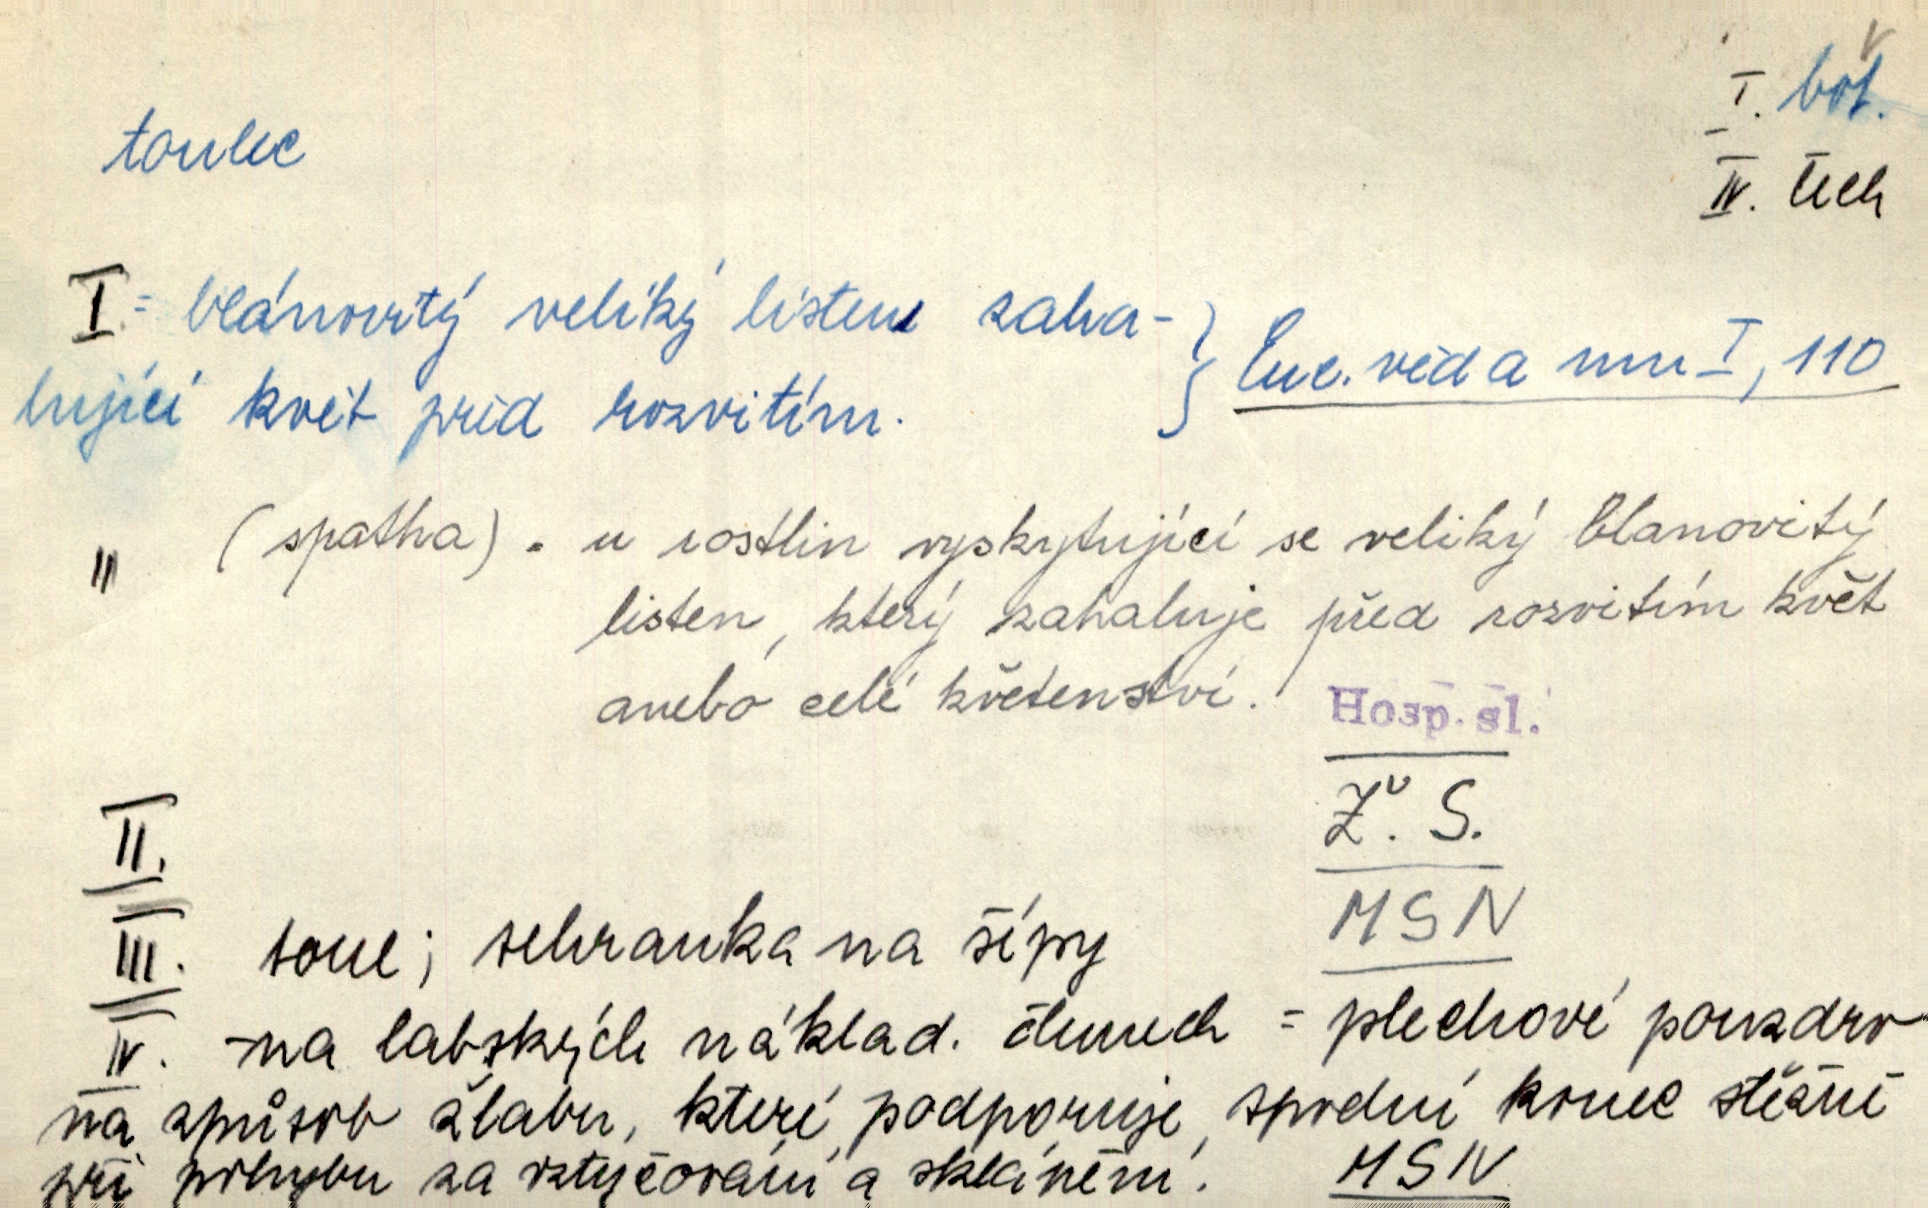 I. bot.
IV. tech
toulec
I = blánovitý veliký listen zaha-
lující květ před rozvitím. } Enc. věd a um I, 110
" (spatha) = u rostlin vyskytující se veliký blanovitý
listen, který zahaluje před rozvitím květ
anebo celé květenství. Hosp. sl.
II. Ž. S.
III. toul; schranka na šípy MSN
IV. - na labských náklad. člunech = plechové pouzdro
na způsob žlabu, které podporuje spodní konec stěžně
při pohybu za vztyčování a sklánění. MSN